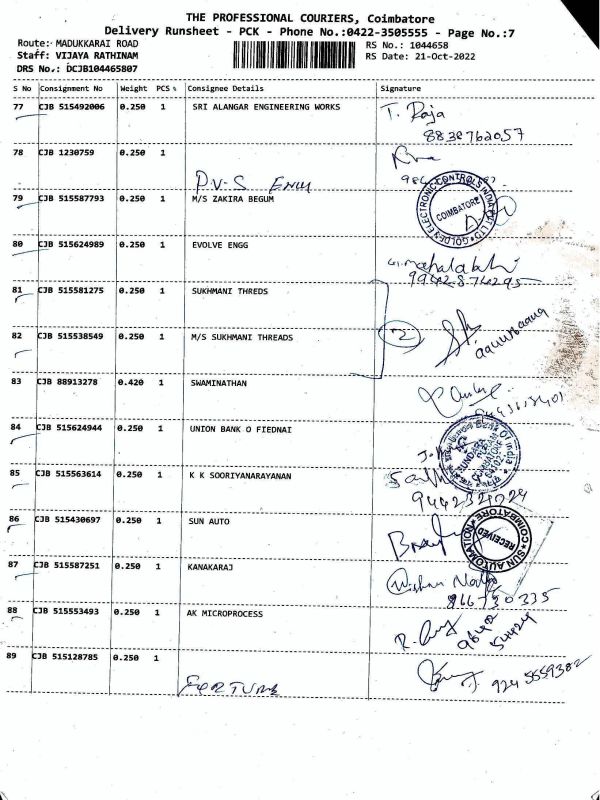 THE PROFESSIONAL COURIERS, Coimbatore
Delivery Runsheet - PCK - Phone No.:0422-3505555 - Page No.:7
Route:- MADUKKARAI ROAD RS No.: 1044658
Staff: VIJAYA RATHINAM RS Date: 21-Oct-2022
DRS No.: DCJB104465807
S No Consignment No Weight PCS % Consignee Details Signature
77 CJB 515492006 0.250 1 SRI ALANGAR ENGINEERING WORKS T. Raja
8838762057
78 CJB 1230759 0.250 1
P.V.S Engg
79 CJB 515587793 0.250 1 M/S ZAKIRA BEGUM
GOLDEN ELECTRONIC CONTROLS INDIA PVT LTD COIMBATORE
80 CJB 515624989 0.250 1 EVOLVE ENGG G. Mahalakshmi
9942874295
81 CJB 515581275 0.250 1 SUKHMANI THREDS
82 CJB 515538549 0.250 1 M/S SUKHMANI THREADS 2
83 CJB 88913278 0.420 1 SWAMINATHAN
84 CJB 515624944 0.250 1 UNION BANK O FIEDNAI
85 CJB 515563614 0.250 1 K K SOORIYANARAYANAN
9442321024
86 CJB 515430697 0.250 1 SUN AUTO
SUN AUTOMATION COIMBATORE RECEIVED
87 CJB 515587251 0.250 1 KANAKARAJ
88 CJB 515553493 0.250 1 AK MICROPROCESS
96422
54424
89 CJB 515128785 0.250 1
FORTUNE 924 5559382